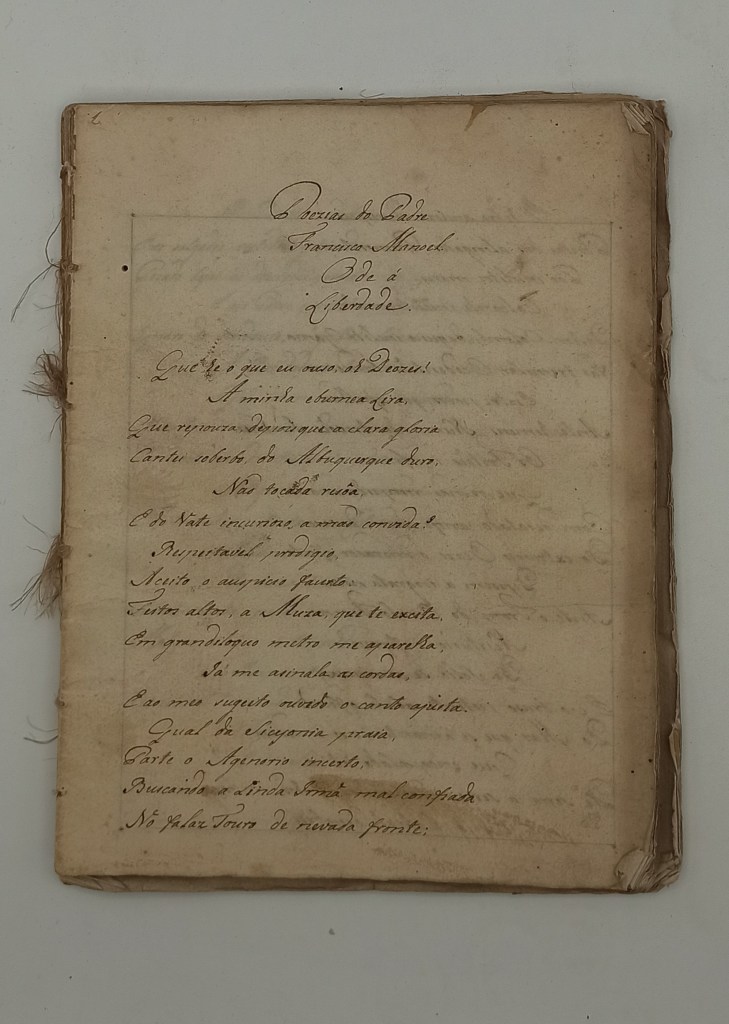 1
Poezias do Padre
Francisco Manoel.
Ode á
Liberdade.
Que he o que eu ouso, oh Deozes!
A minha eburnea Lira,
Que repouza, depois que a clara gloria
Cantei soberbo, do Albuquerque duro,
Não tocada resôa,
E do Vate incuriozo, a mão convida?
Respeitavel prodigio,
Aceito o auspicio fausto:
Feitos altos, a Muza, que te excita,
Em grandiloquo metro me aparelha,
Já me asinala as cordas,
E ao meo sugeito ouvido o canto ajusta.
Qual da Sicyonia praia,
Parte o Agenorio incerto,
Buscando a Linda Irmã mal confiada
No falaz Touro de nevada fronte: